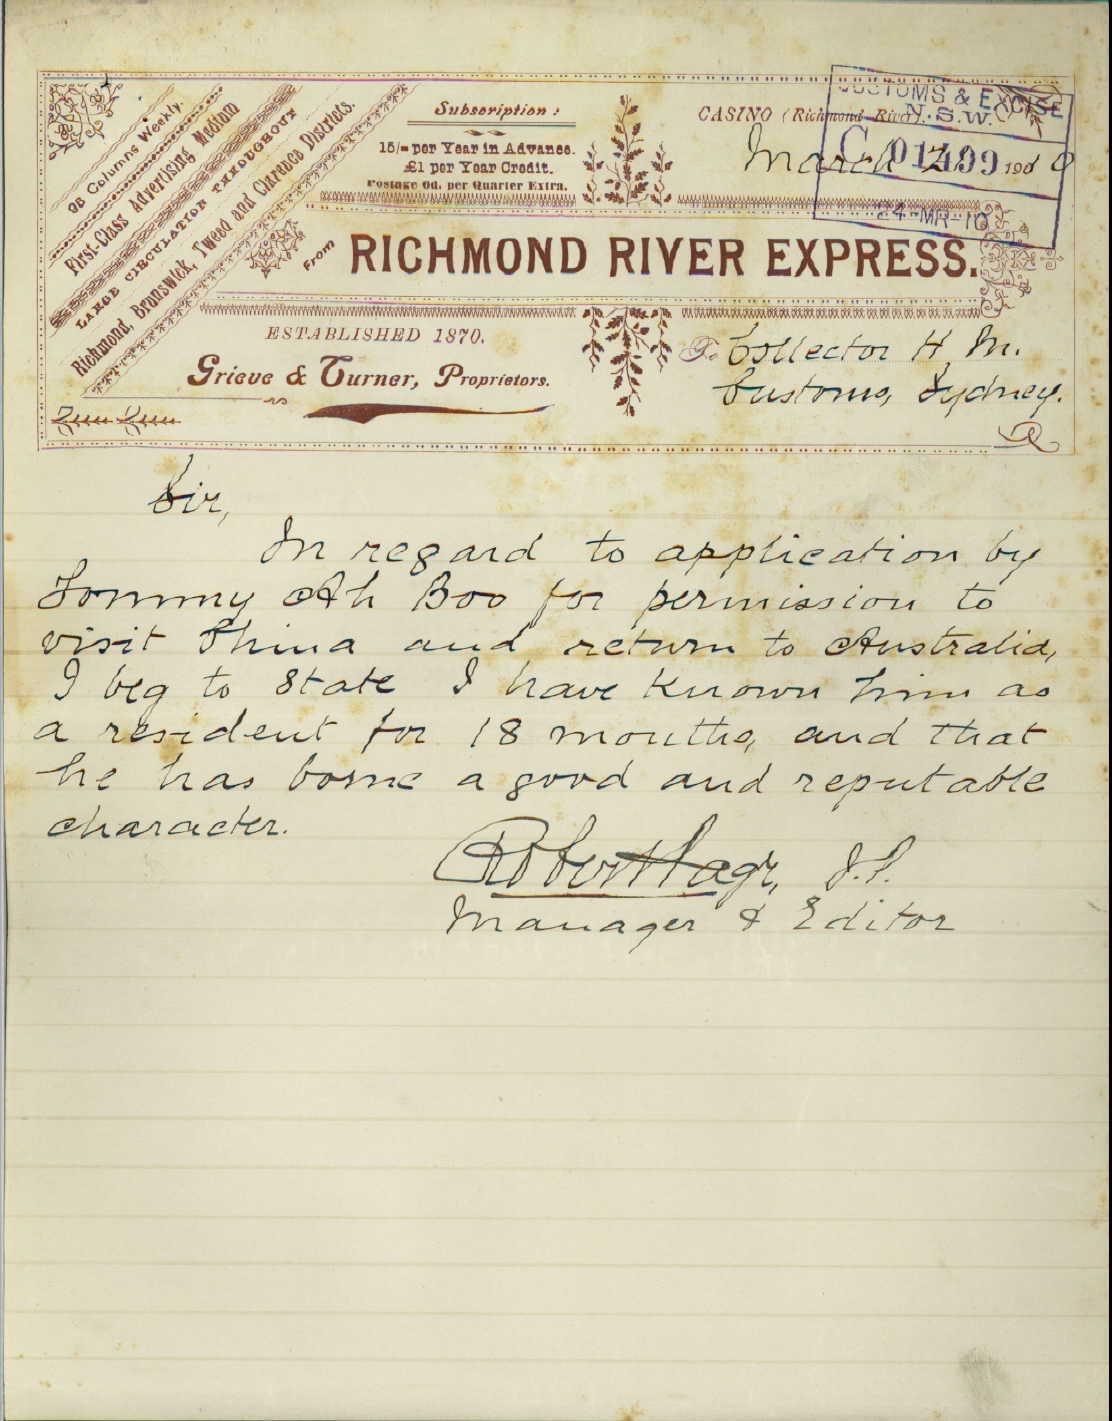 96 Columns Weekly.
First-Class Advertising Medium
LARGE CIRCULATION THROUGHOUT
Richmond, Brunswick, Tweed and Clarence Districts.
Subscription:
15/- per Year in Advance.
£1 per Year Credit.
Postage 6d. per Quarter Extra.
CASINO (Richmond River)
March 1910
CUSTOMS & EXCISE
N.S.W.
C 01499
24-MR-10
From RICHMOND RIVER EXPRESS.
ESTABLISHED 1870.
Grieve & Turner, Proprietors.
To Collector H. M.
Customs, Sydney.
Sir,
In regard to application by
Tommy Ah Boo for permission to
visit China and return to Australia,
I beg to state I have known him as
a resident for 18 months, and that
he has borne a good and reputable
character.
J.P.
Manager & Editor